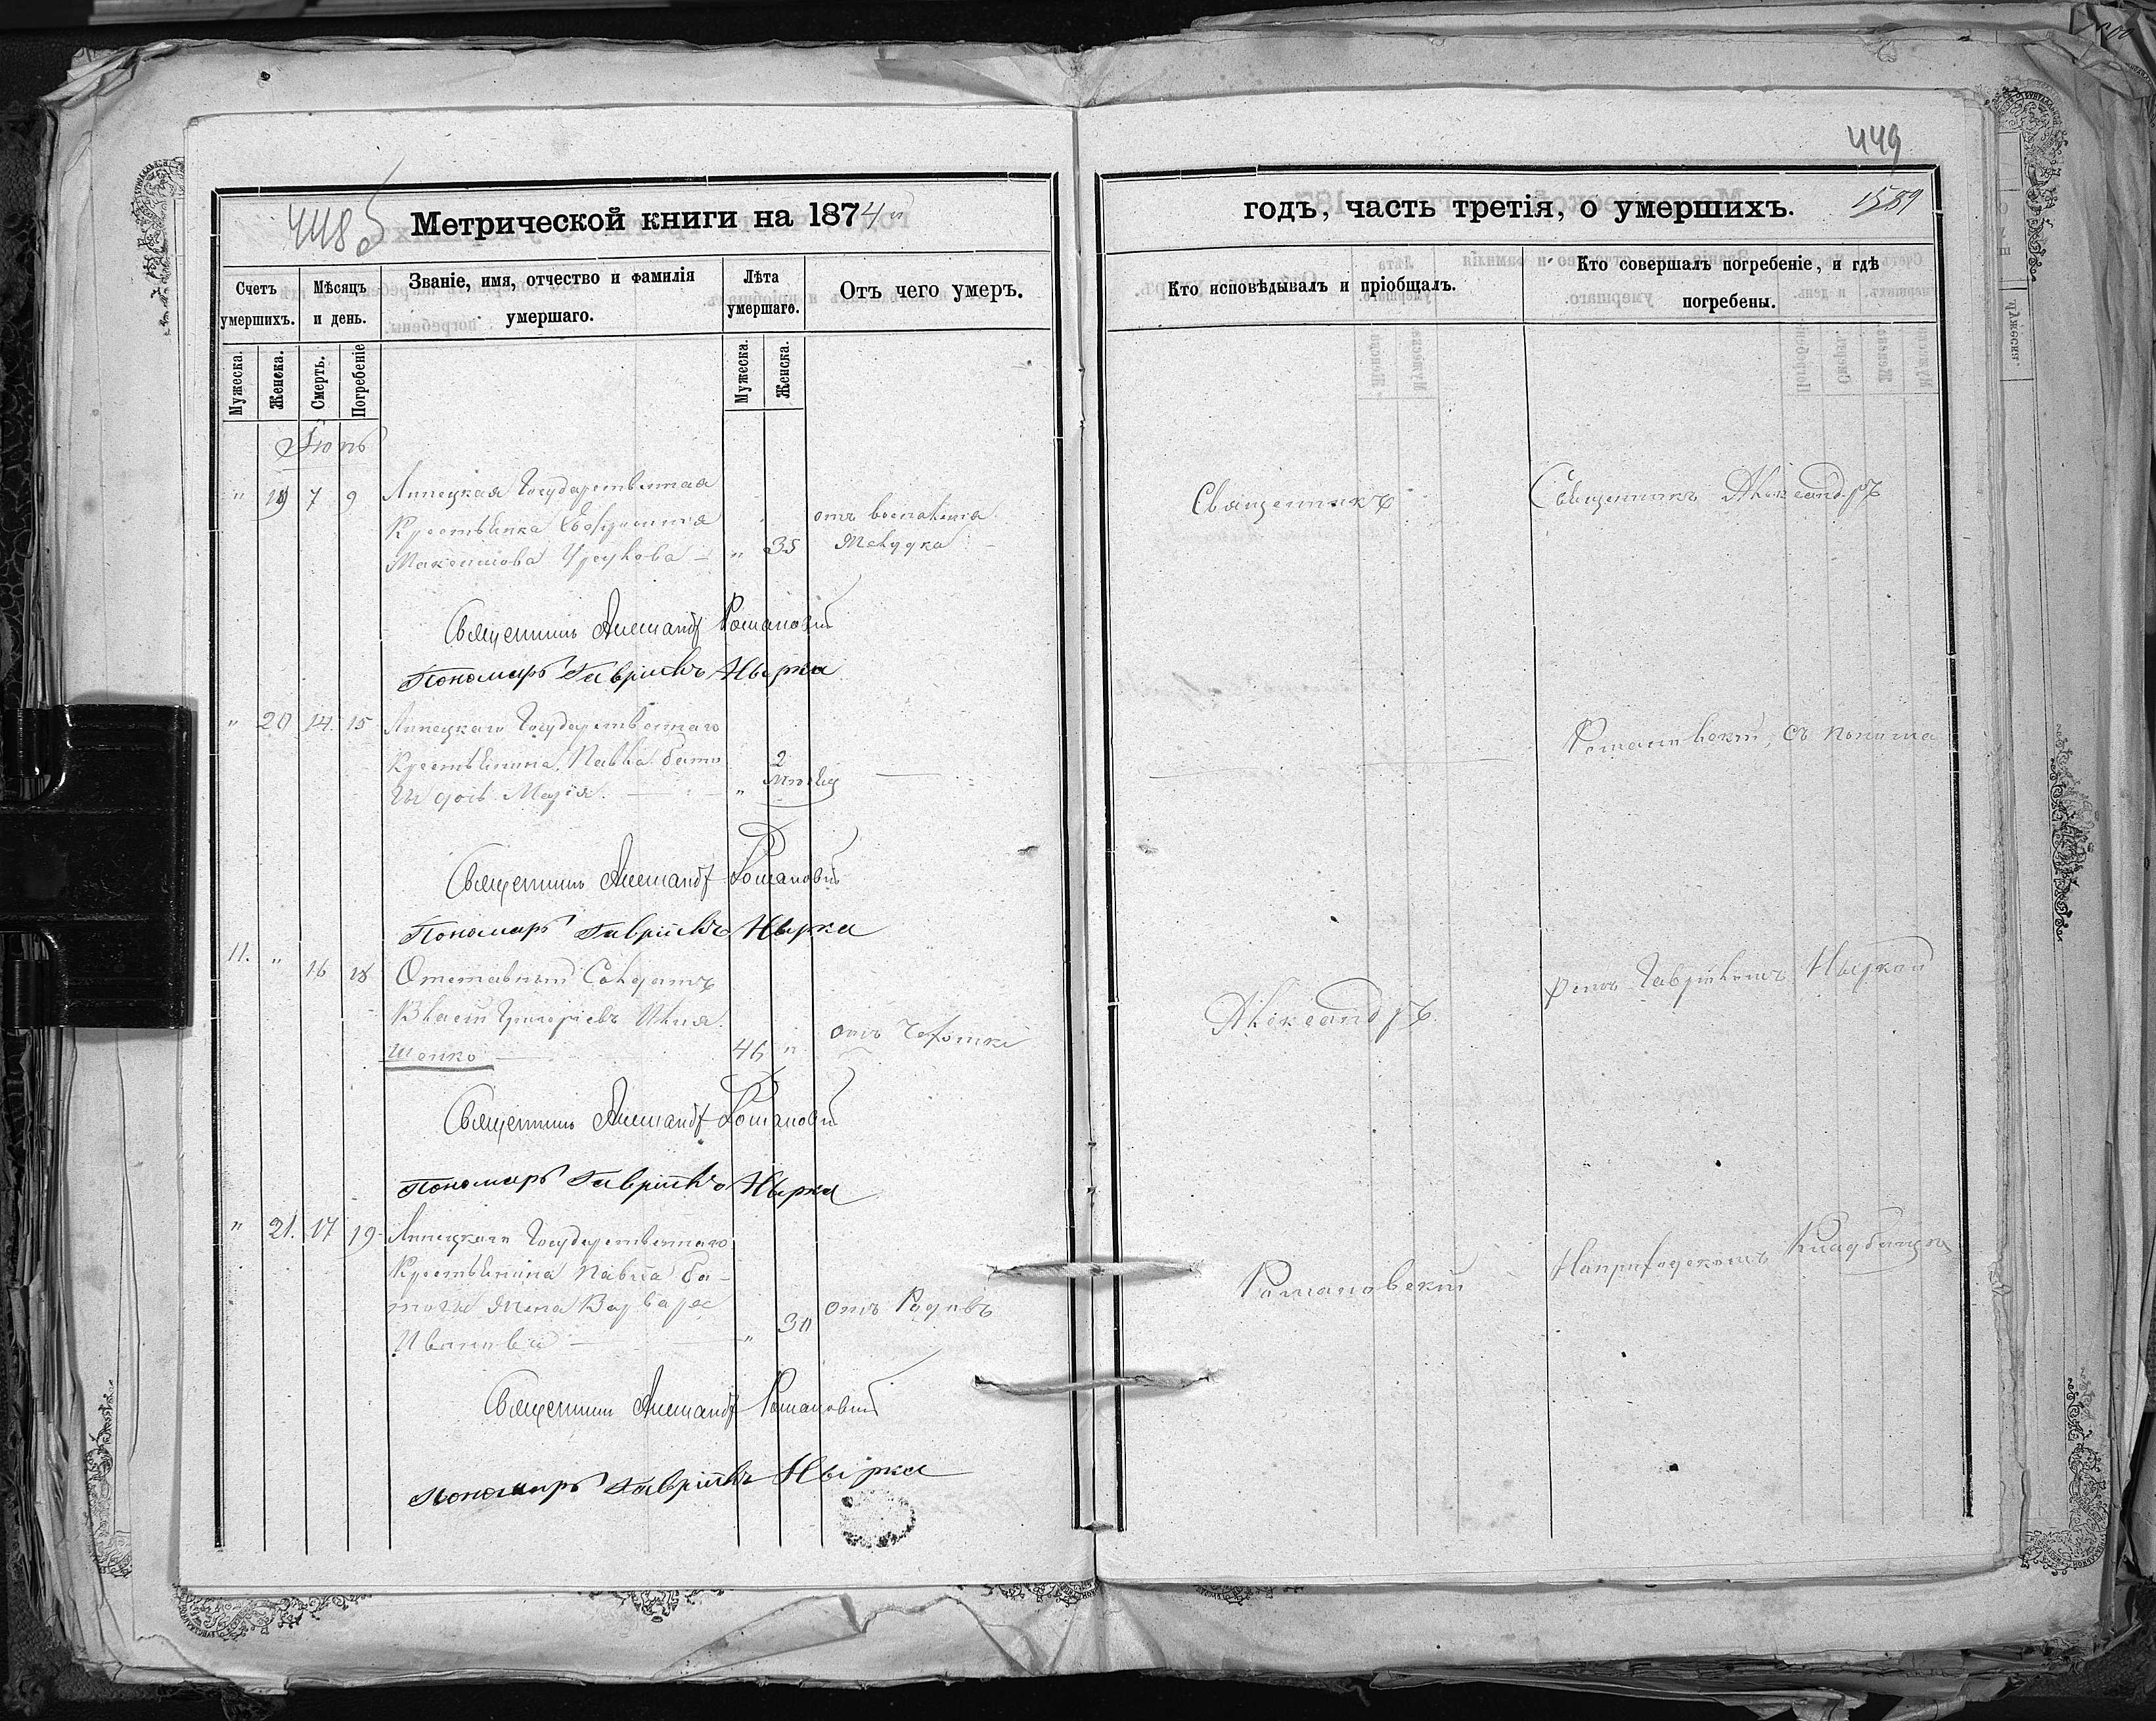 448 б
Метрической книги на 1874
Счетъ умершихъ.
Мѣсяцъ и день.
Званіе, имя, отчество и фамилія умершаго.
Лѣта умершаго.
Отъ чего умеръ.
Мужеска.
Женска.
Смерть.
Погребеніе
Мужеска.
Женска.
Іюнь
" 19 7 9 Липецкая Государственная
Крестьянка Евфросинія
Максимова " 35
отъ воспаленія
желудка
Священникъ Александръ Романовскій
Пономарь Гавріилъ Нырка
" 20 14. 15 Липецкаго Государственнаго
Крестьянина Павла
дочь Марія. " 2
Священникъ Александръ Романовскій
Пономарь Гавріилъ Нырка
11. " 16 18 Отставный Солдатъ
Власій Григоріевъ
шенко 46 "
отъ Чахотки
Священникъ Александръ Романовскій
Пономарь Гавріилъ Нырка
" 21. 17 19 Липецкаго Государственнаго
Крестьянина Павла
жена Варвара
Иванова " 30
отъ Родовъ
Священникъ Александръ Романовскій
Пономарь Гавріилъ Нырка
449
1589
годъ, часть третія, о умершихъ.
Кто исповѣдывалъ и пріобщалъ.
Кто совершалъ погребеніе, и гдѣ погребены.
Священникъ
Александръ
Романовскій
Священникъ Александръ
Романовскій, съ понома
ремъ Гавріиломъ Ныркой
На приходскомъ Кладбищѣ